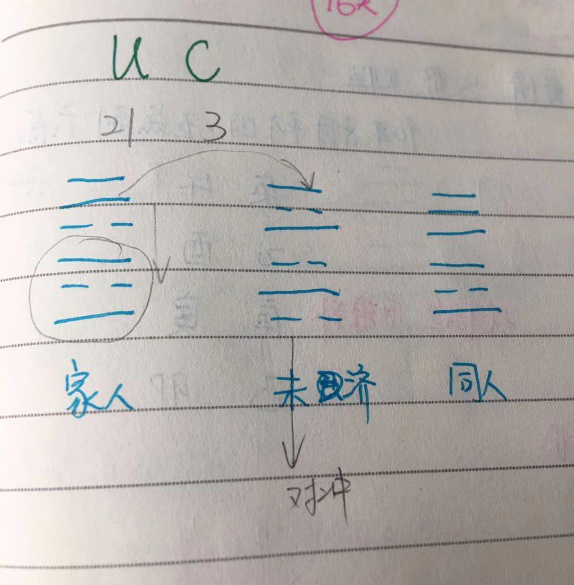 16天
U C
21 3
家人 未济 同人
对冲